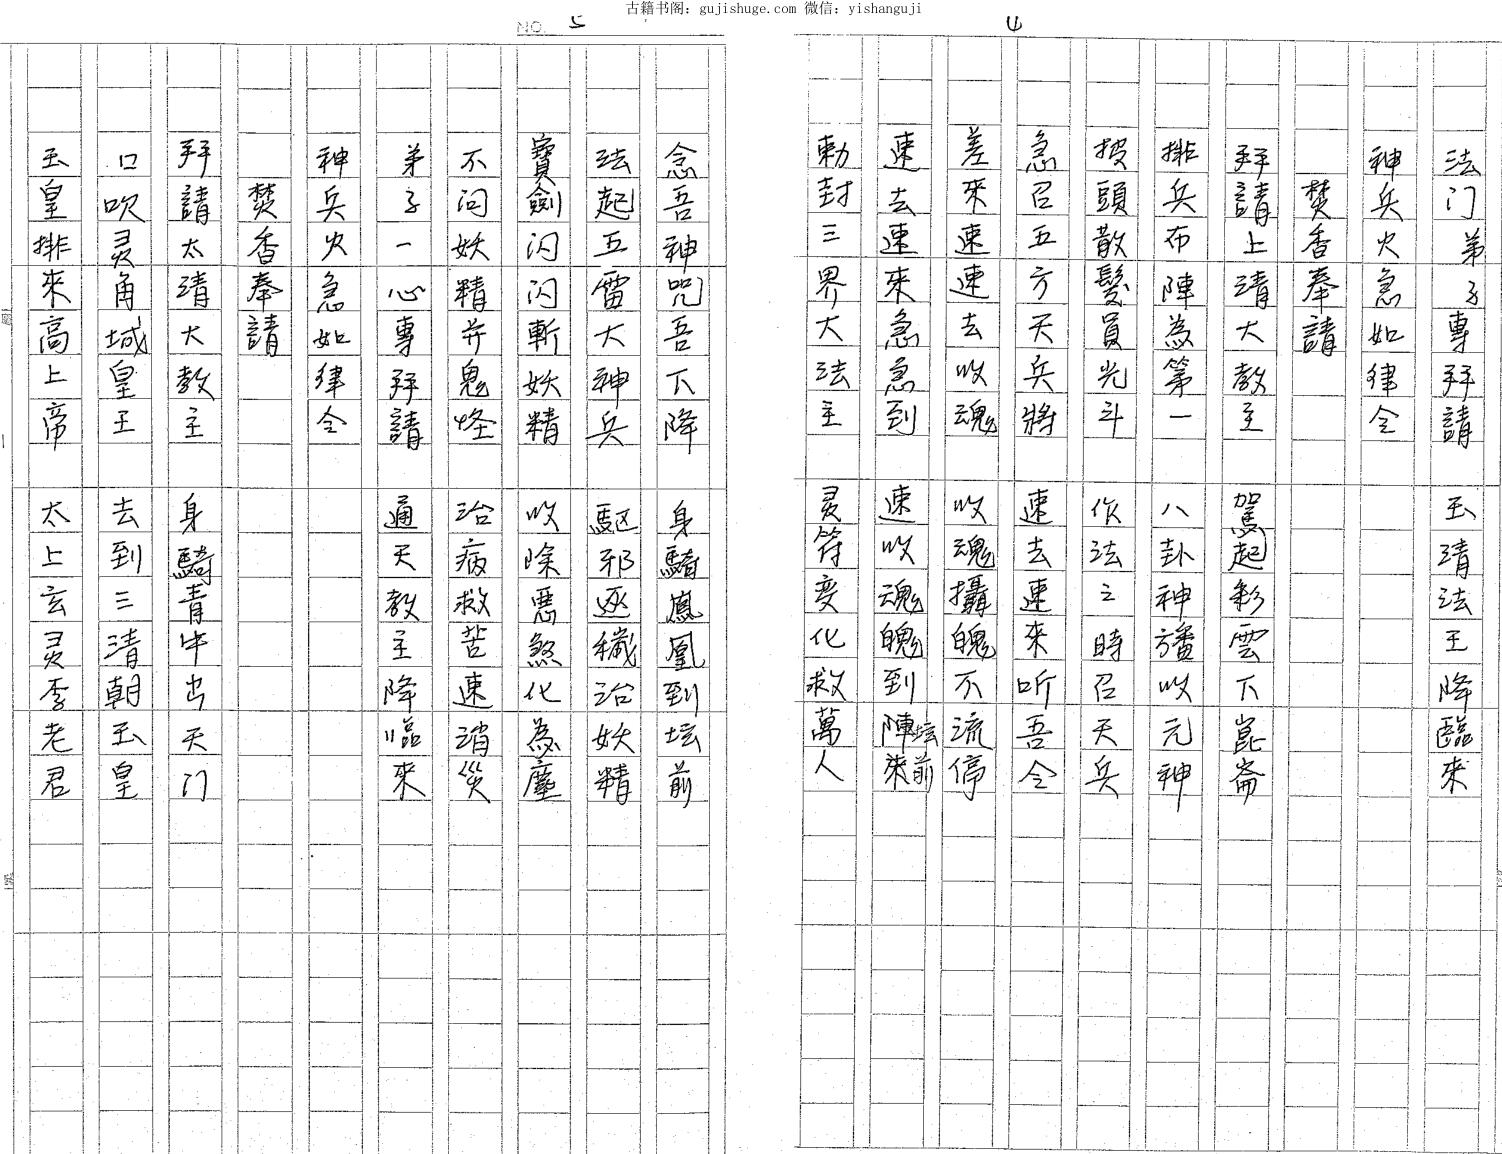 古籍书阁: gujishuge.com 微信: yishanguji
4
法门弟子專拜請 玉清法王降臨來
神兵火急如律令
焚香奉請
拜請上清大教主 駕起彩雲下崑崙
排兵布陣為第一 八卦神旛收元神
披頭散髮員光斗 作法之時召天兵
急召五方天兵將 速去速來听吾令
差來速速去收魂 收魂攝魄不流停
速去速來急急到 速收魂魄到陣來坛前
勅封三界大法主 灵符变化救萬人
NO. 5
念吾神咒吾下降 身騎鳳凰到坛前
法起五雷大神兵 駆邪逐穢治妖精
寶劍闪闪斬妖精 收除惡煞化為塵
不问妖精并鬼怪 治病救苦速消災
弟子一心專拜請 通天教主降臨來
神兵火急如律令
焚香奉請
拜請太清大教主 身騎青牛出天门
口吹灵角城皇王 去到三清朝玉皇
玉皇排來高上帝 太上玄灵李老君